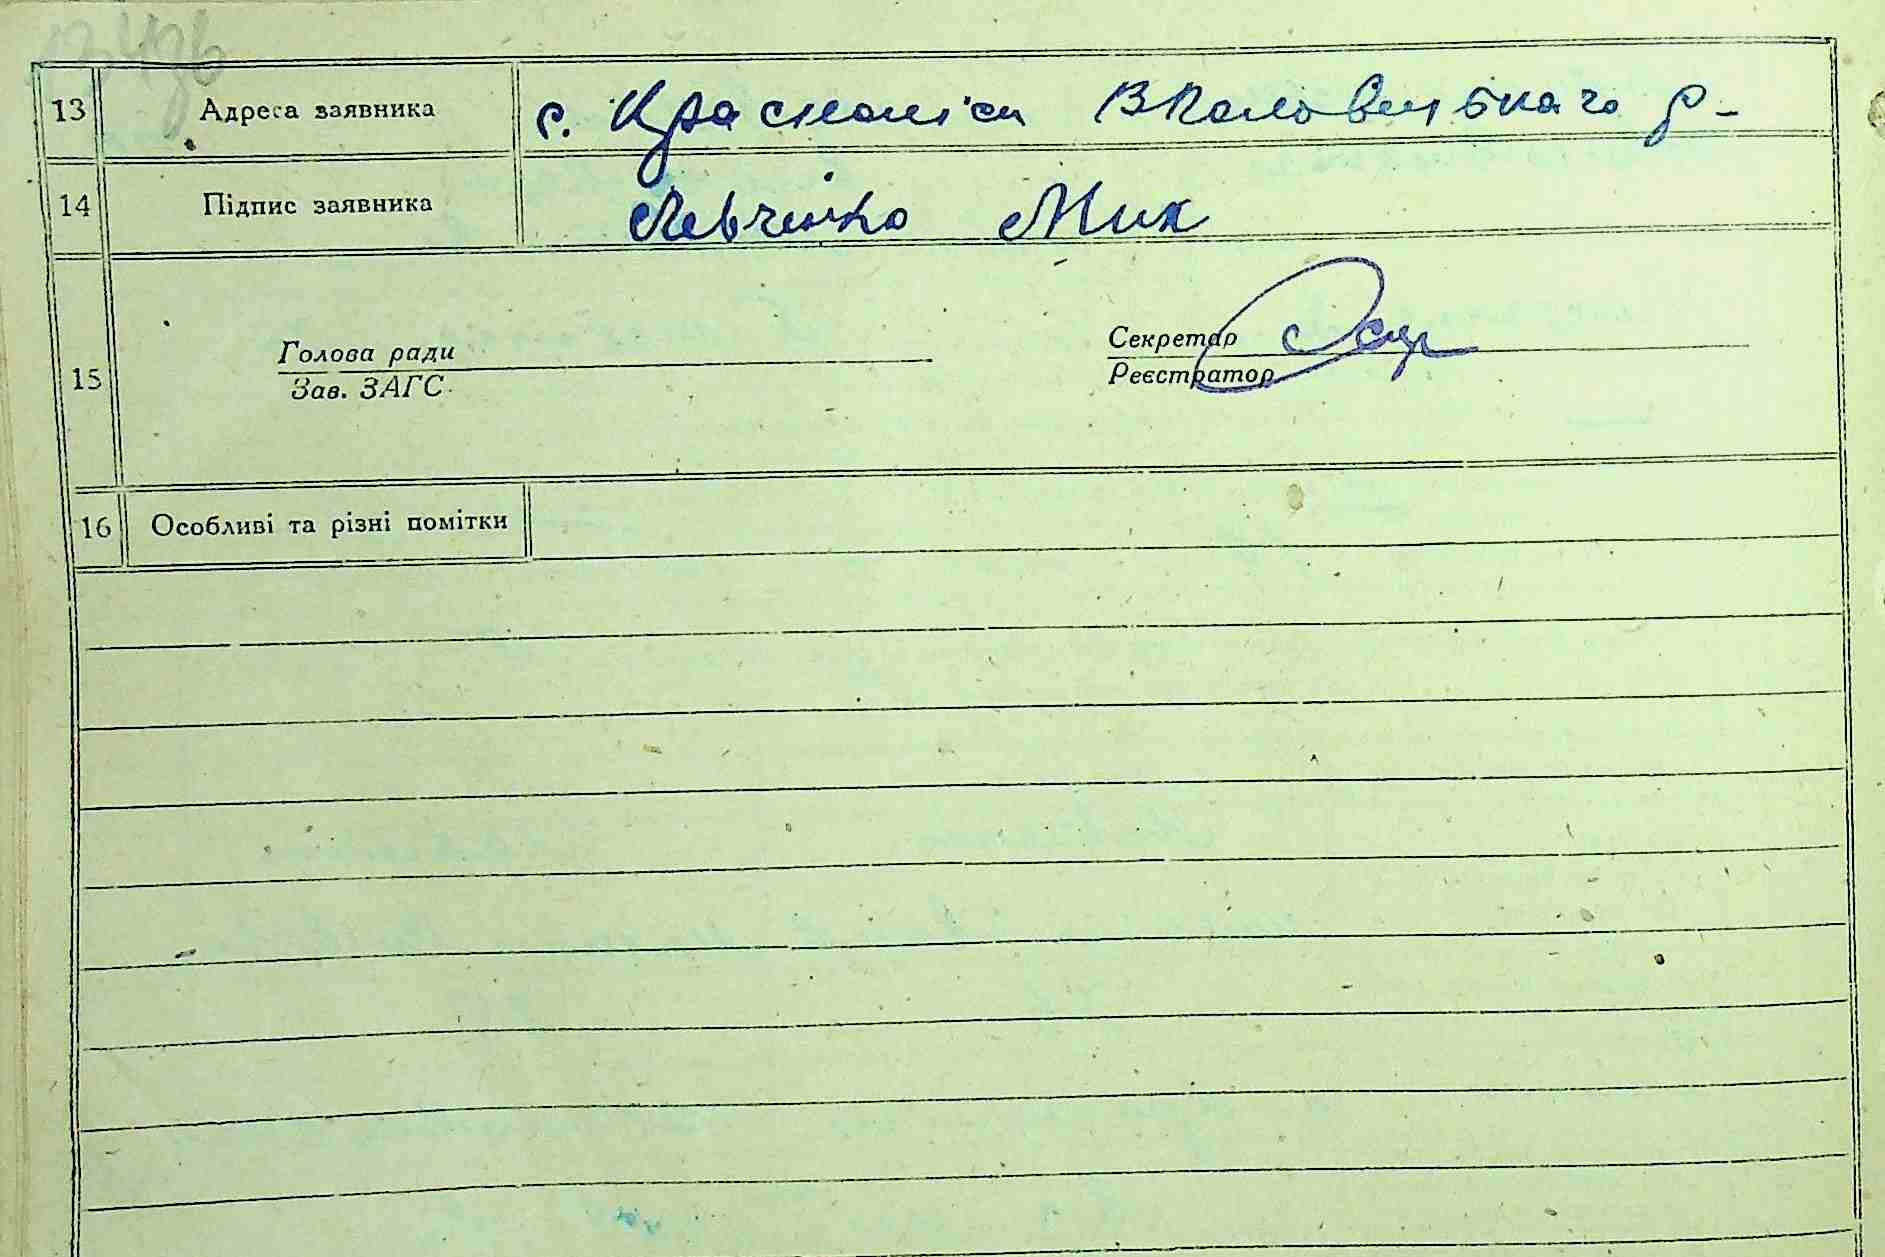 13 Адреса заявника с. Красноліси В Половецького р-
14 Підпис заявника Левченко Мик
15 Голова ради Секретар
Зав. ЗАГС Реєстратор
16 Особливі та різні помітки